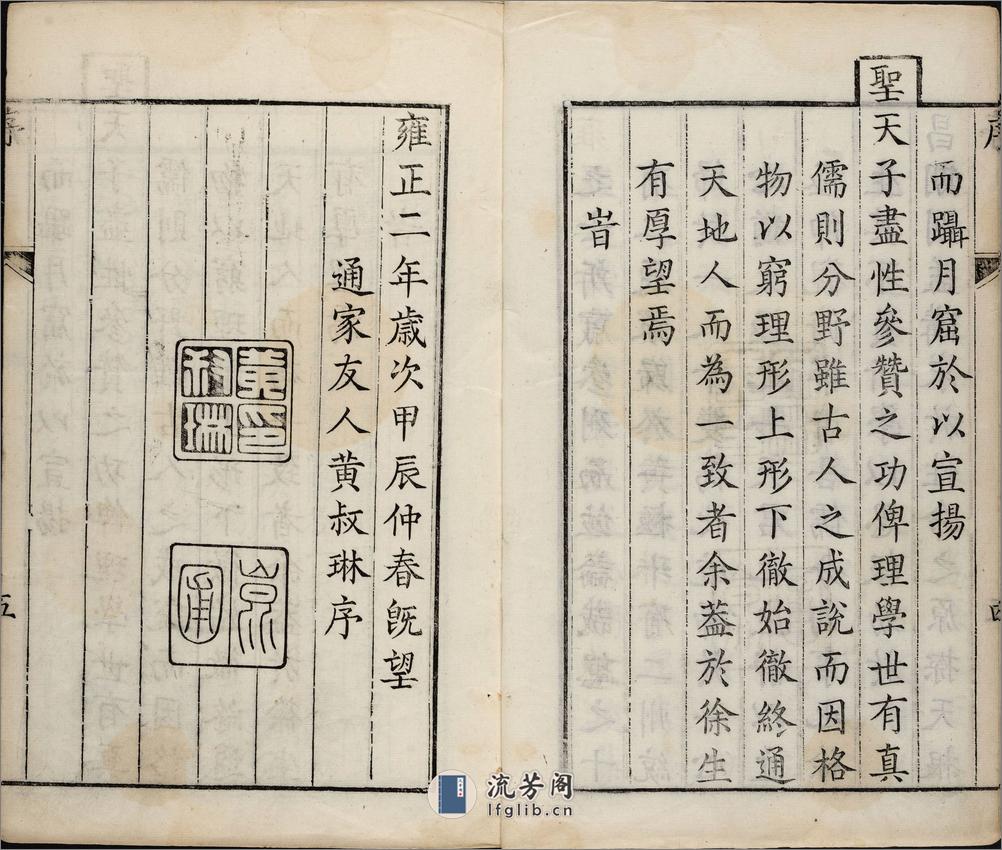 而躡月窟於以宣揚
聖天子盡性參贊之功俾理學世有真
儒則分野雖古人之成說而因格
物以窮理形上形下徹始徹終通
天地人而為一致者余葢於徐生
有厚望焉
旹
雍正二年歲次甲辰仲春旣望
通家友人黄叔琳序
黄印
叔琳
崑
圃
五
流芳阁
lfglib.cn